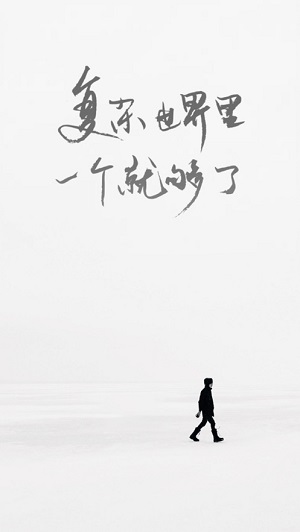 复杂世界里
一个就够了